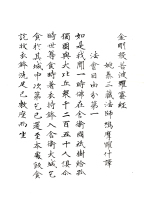 金剛般若波羅蜜經
姚秦三藏法師鳩摩羅什譯
法會因由分第一
如是我聞一時佛在舍衛國祇樹給孤
獨園與大比丘衆千二百五十人俱尒
時世尊食時著衣持鉢入舍衛大城乞
食於其城中次第乞已還至本處飯食
訖收衣鉢洗足已敷座而坐